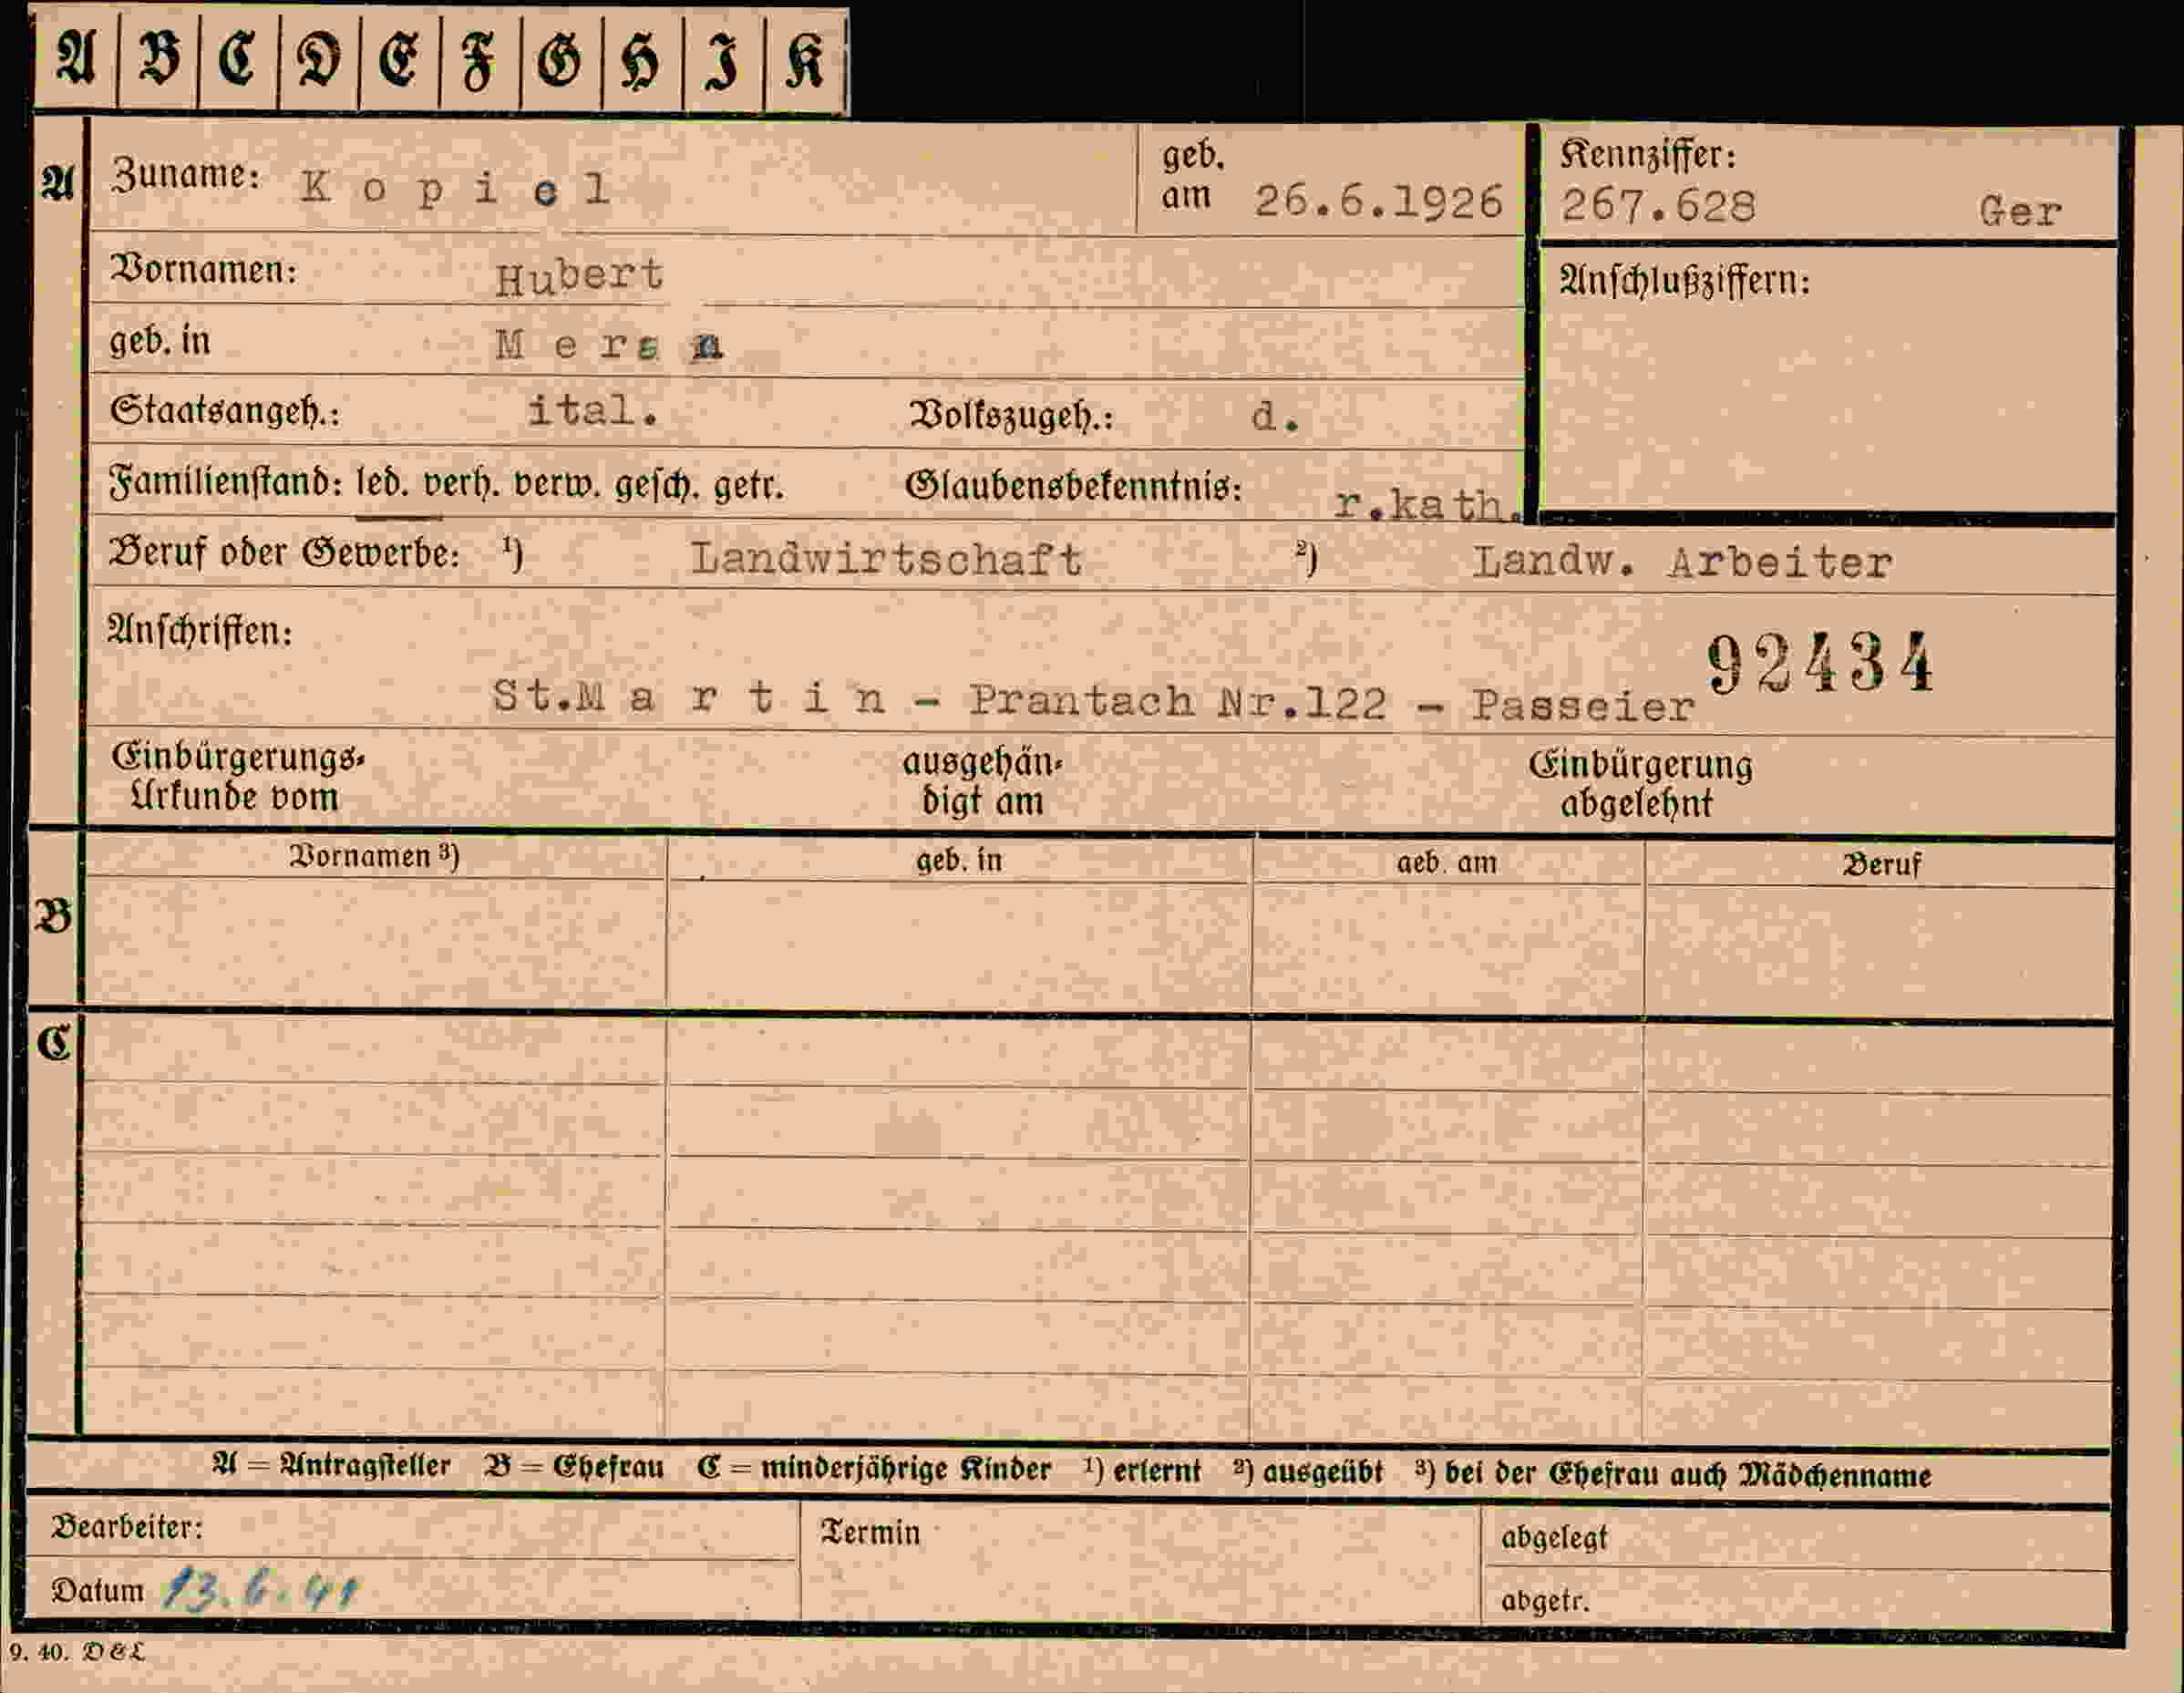 A B C D E F G H I K
A Zuname: Kopiel geb. am 26.6.1926 Kennziffer: 267.628 Ger
Vornamen: Hubert Anschlußziffern:
geb. in
Staatsangeh.: ital. Volkszugeh.: d.
Familienstand: led. verh. verw. gesch. getr. Glaubensbekenntnis: r.kath.
Beruf oder Gewerbe: ¹) Landwirtschaft ²) Landw. Arbeiter
Anschriften: 92434
St.Martin - Prantach Nr.122 - Passeier
Einbürgerungs- ausgehän- Einbürgerung
Urkunde vom digt am abgelehnt
Vornamen ³) geb. in geb. am Beruf
B
C
A = Antragsteller B = Ehefrau C = minderjährige Kinder ¹) erlernt ²) ausgeübt ³) bei der Ehefrau auch Mädchenname
Bearbeiter: Termin abgelegt
Datum 13.6.41 abgetr.
9. 40. D & L